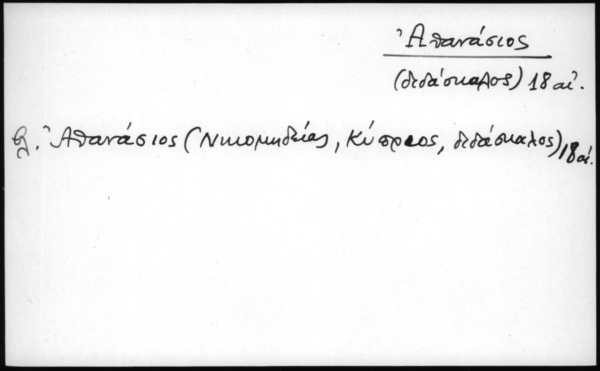 Ἀθανάσιος
(διδάσκαλος) 18 αἰ.
βλ. Ἀθανάσιος (Νικομηδείας, Κύπριος, διδάσκαλος) 18 αἰ.